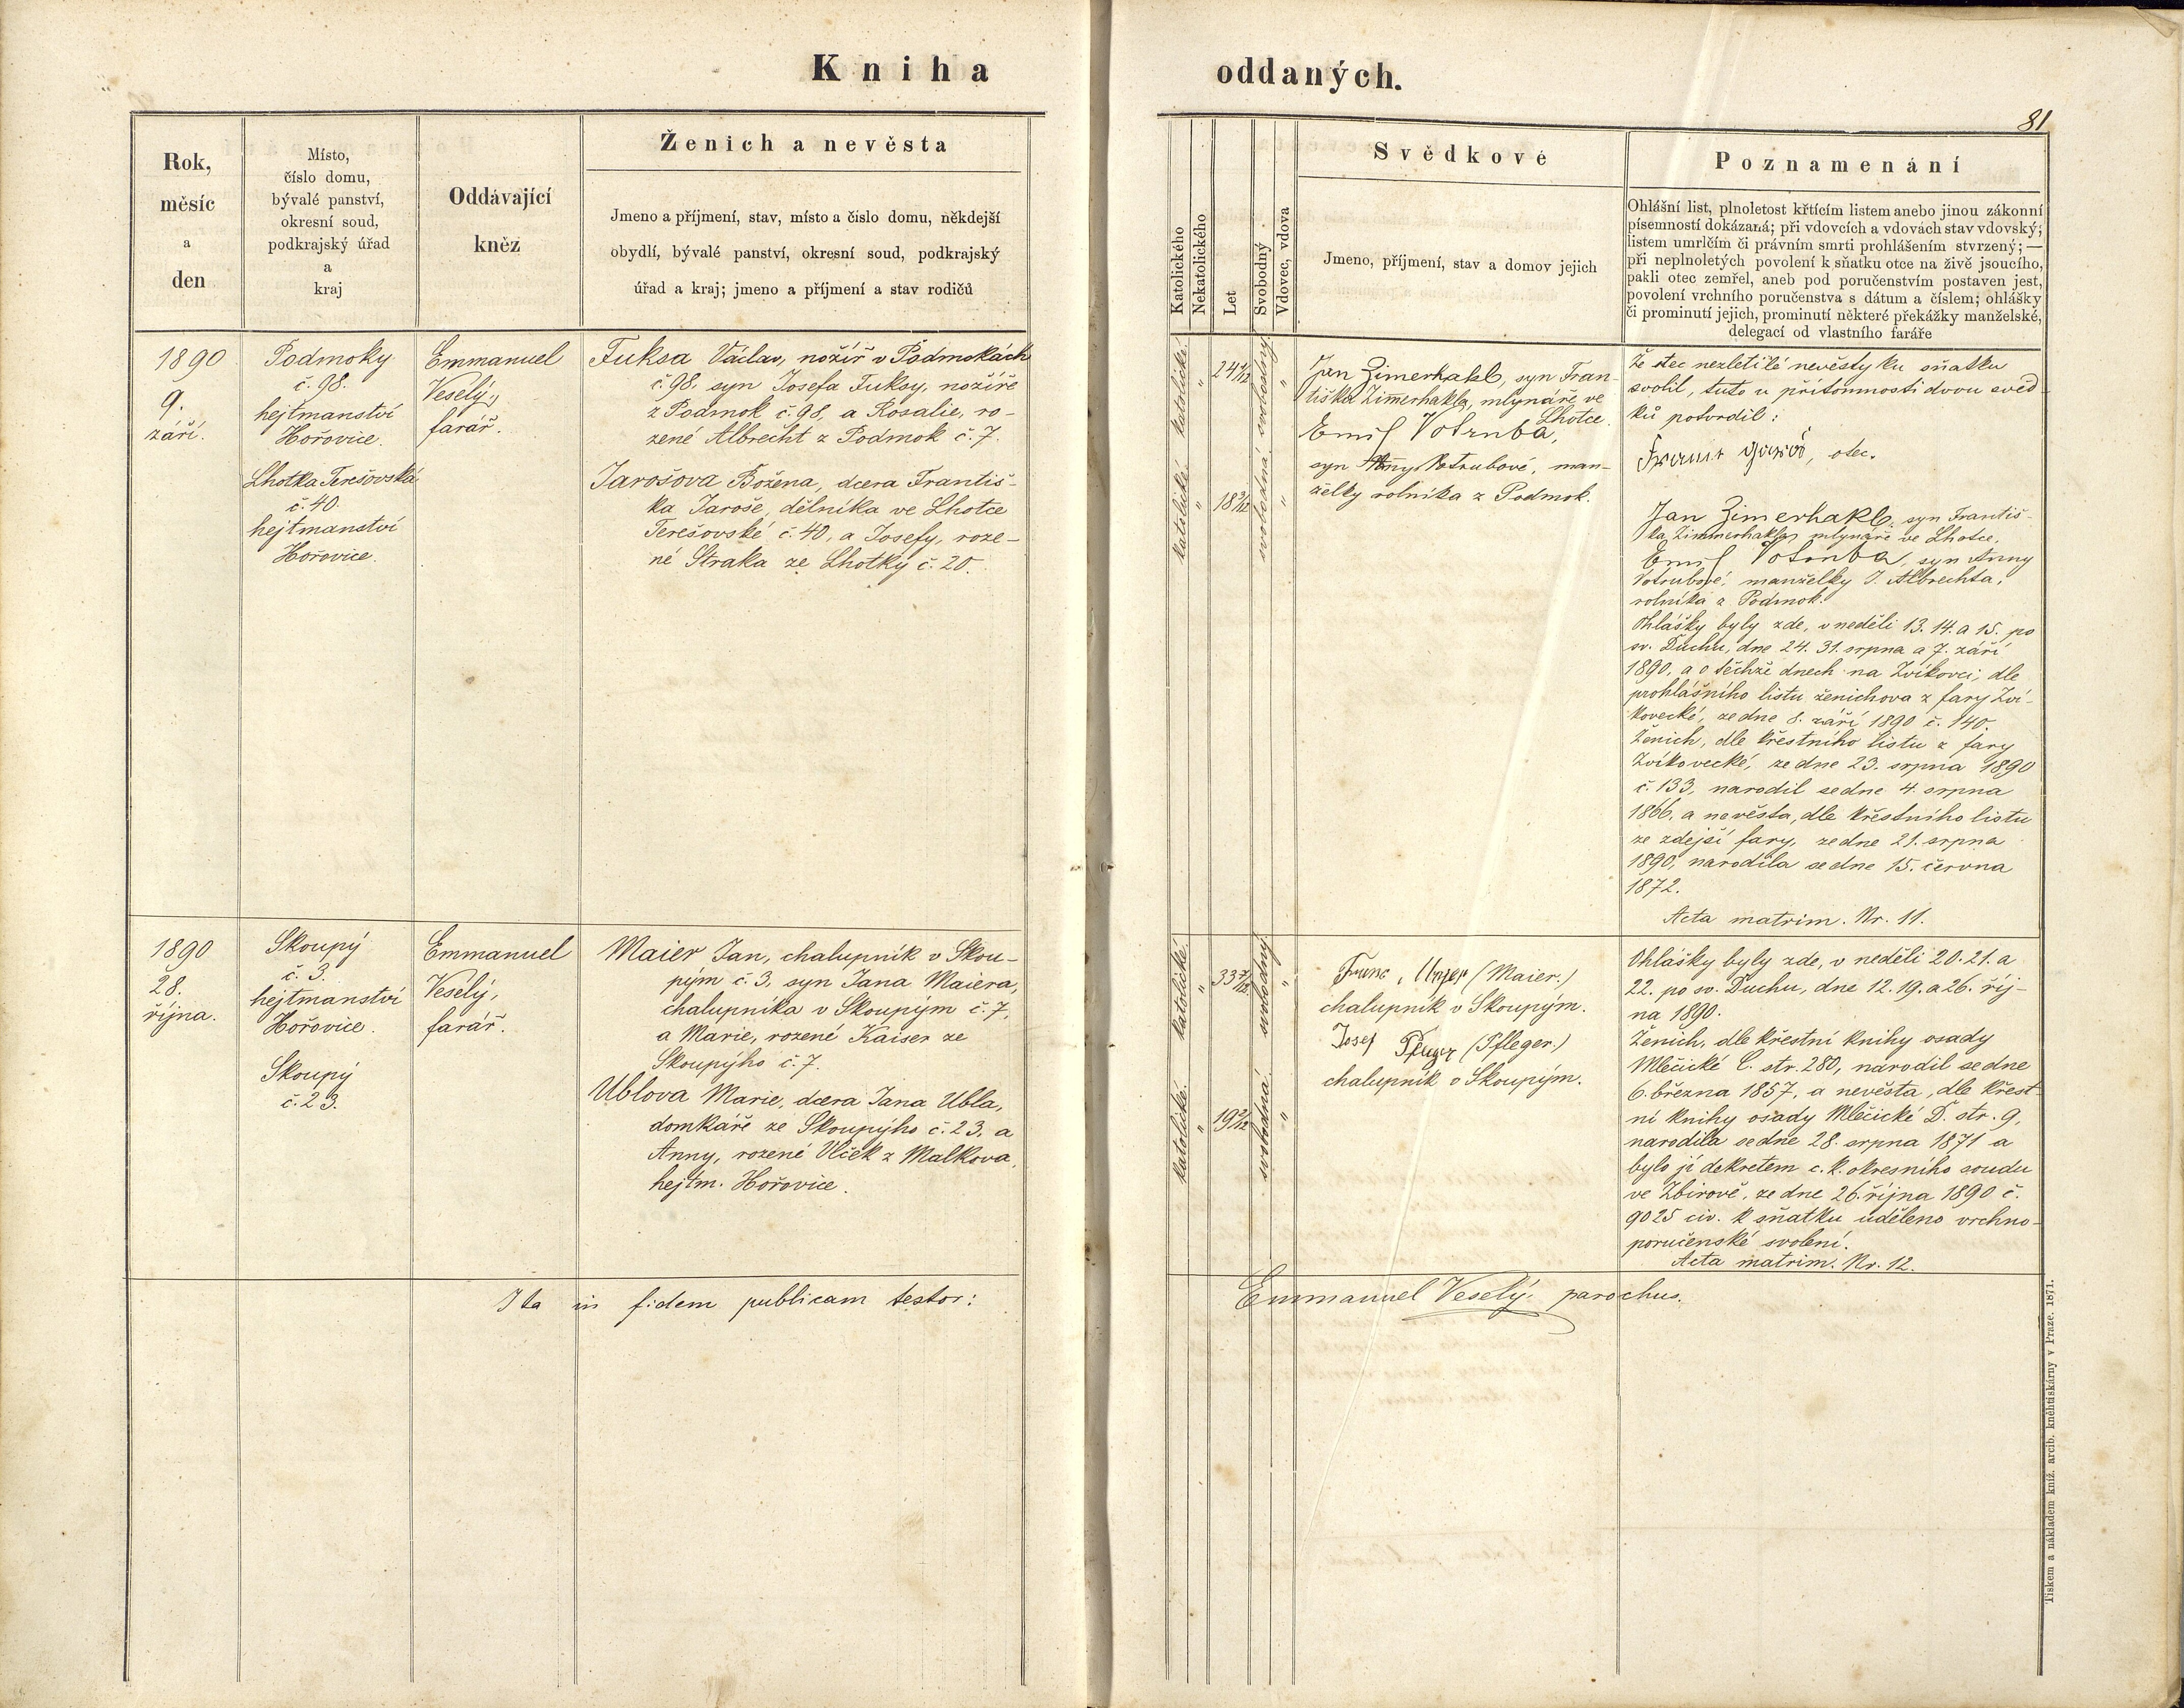 Kniha
oddaných.
81
Rok,
měsíc
a
den
Místo,
číslo domu,
bývalé panství,
okresní soud,
podkrajský úřad
a
kraj
Oddávající
kněz
Ženich a nevěsta
Jmeno a příjmení, stav, místo a číslo domu, někdejší
obydlí, bývalé panství, okresní soud, podkrajský
úřad a kraj; jmeno a příjmení a stav rodičů
Katolického
Nekatolického
Let
Svobodný
Vdovec, vdova
Svědkové
Jmeno, příjmení, stav a domov jejich
Poznamenání
Ohlášní list, plnoletost křtícím listem anebo jinou zákonní
písemností dokázaná; při vdovcích a vdovách stav vdovský;
listem umrlčím či právním smrti prohlášením stvrzený; —
při neplnoletých povolení k sňatku otce na živě jsoucího,
pakli otec zemřel, aneb pod poručenstvím postaven jest,
povolení vrchního poručenstva s dátum a číslem; ohlášky
či prominutí jejich, prominutí některé překážky manželské,
delegací od vlastního faráře
1890
9.
září.
Podmoky
č. 98.
hejtmanství
Hořovice.
Lhotka Terešovská
č. 40.
hejtmanství
Hořovice.
Emmanuel
Veselý,
farář.
Fuksa Václav, nožíř v Podmokách
č. 98, syn Josefa Fuksy, nožíře
z Podmok č. 98, a Rosalie, ro-
zené Albrecht z Podmok č. 7.
Jarošova Božena, dcera Františ-
ka Jaroše, dělníka ve Lhotce
Terešovské č. 40, a Josefy, roze-
né Straka ze Lhotky č. 20.
katolické.
"
24 1/12
svobodný.
"
katolické.
"
18 3/12
svobodná.
"
Jan Zimerhakl, syn Fran-
tiška Zimmerhakla, mlynáře ve
Lhotce.
Emil Votruba,
syn Anny Votrubové, man-
želky rolníka z Podmok.
Že otec nezletilé nevěsty ku sňatku
svolil, tuto u přítomnosti dvou svěd-
ků potvrdil:
otec.
Jan Zimerhakl, syn Františ-
ka Zimmerhakla mlynáře ve Lhotce.
Emil Votruba, syn Anny
Votrubové, manželky J. Albrechta,
rolníka z Podmok.
Ohlášky byly zde, v neděli 13. 14. a 15. po
sv. Duchu, dne 24. 31. srpna a 7. září
1890, a o těchže dnech na Zvíkovci, dle
prohlášního listu ženichova z fary Zví-
kovecké, ze dne 8. září 1890 č. 140.
Ženich, dle křestního listu z fary
Zvíkovecké, ze dne 23. srpna 1890
č. 133, narodil se dne 4. srpna
1866, a nevěsta, dle křestního listu
ze zdejší fary, ze dne 21. srpna
1890, narodila se dne 15. června
1872.
Acta matrim. Nr. 11.
1890
28.
října.
Skoupý
č. 3.
hejtmanství
Hořovice.
Skoupý
č. 23.
Emmanuel
Veselý,
farář.
Maier Jan, chalupník v Skou-
pým č. 3, syn Jana Maiera,
chalupníka v Skoupým č. 7,
a Marie, rozené Kaiser ze
Skoupýho č. 7.
Ublova Marie, dcera Jana Ubla,
domkáře ze Skoupýho č. 23, a
Anny, rozené Vlček z Malkova,
hejtm. Hořovice.
katolické.
"
33 7/12
svobodný.
"
katolické.
"
19 2/12
svobodná.
"
(Maier.)
chalupník v Skoupým.
Josef Pfleger (Pfleger.)
chalupník v Skoupým.
Ohlášky byly zde, v neděli 20. 21. a
22. po sv. Duchu, dne 12. 19. a 26. říj-
na 1890.
Ženich, dle křestní knihy osady
Mlečické C. str. 280, narodil se dne
6. března 1857, a nevěsta, dle křest-
ní knihy osady Mlečické D. str. 9,
narodila se dne 28. srpna 1871 a
bylo jí dekretem c. k. okresního soudu
ve Zbirově, ze dne 26. října 1890 č.
9025 civ. k sňatku uděleno vrchno-
poručenské svolení.
Acta matrim. Nr. 12.
Ita in fidem publicam testor:
Emmanuel Veselý, parochus.
Tiskem a nákladem kníž. arcib. kněhtiskárny v Praze. 1871.